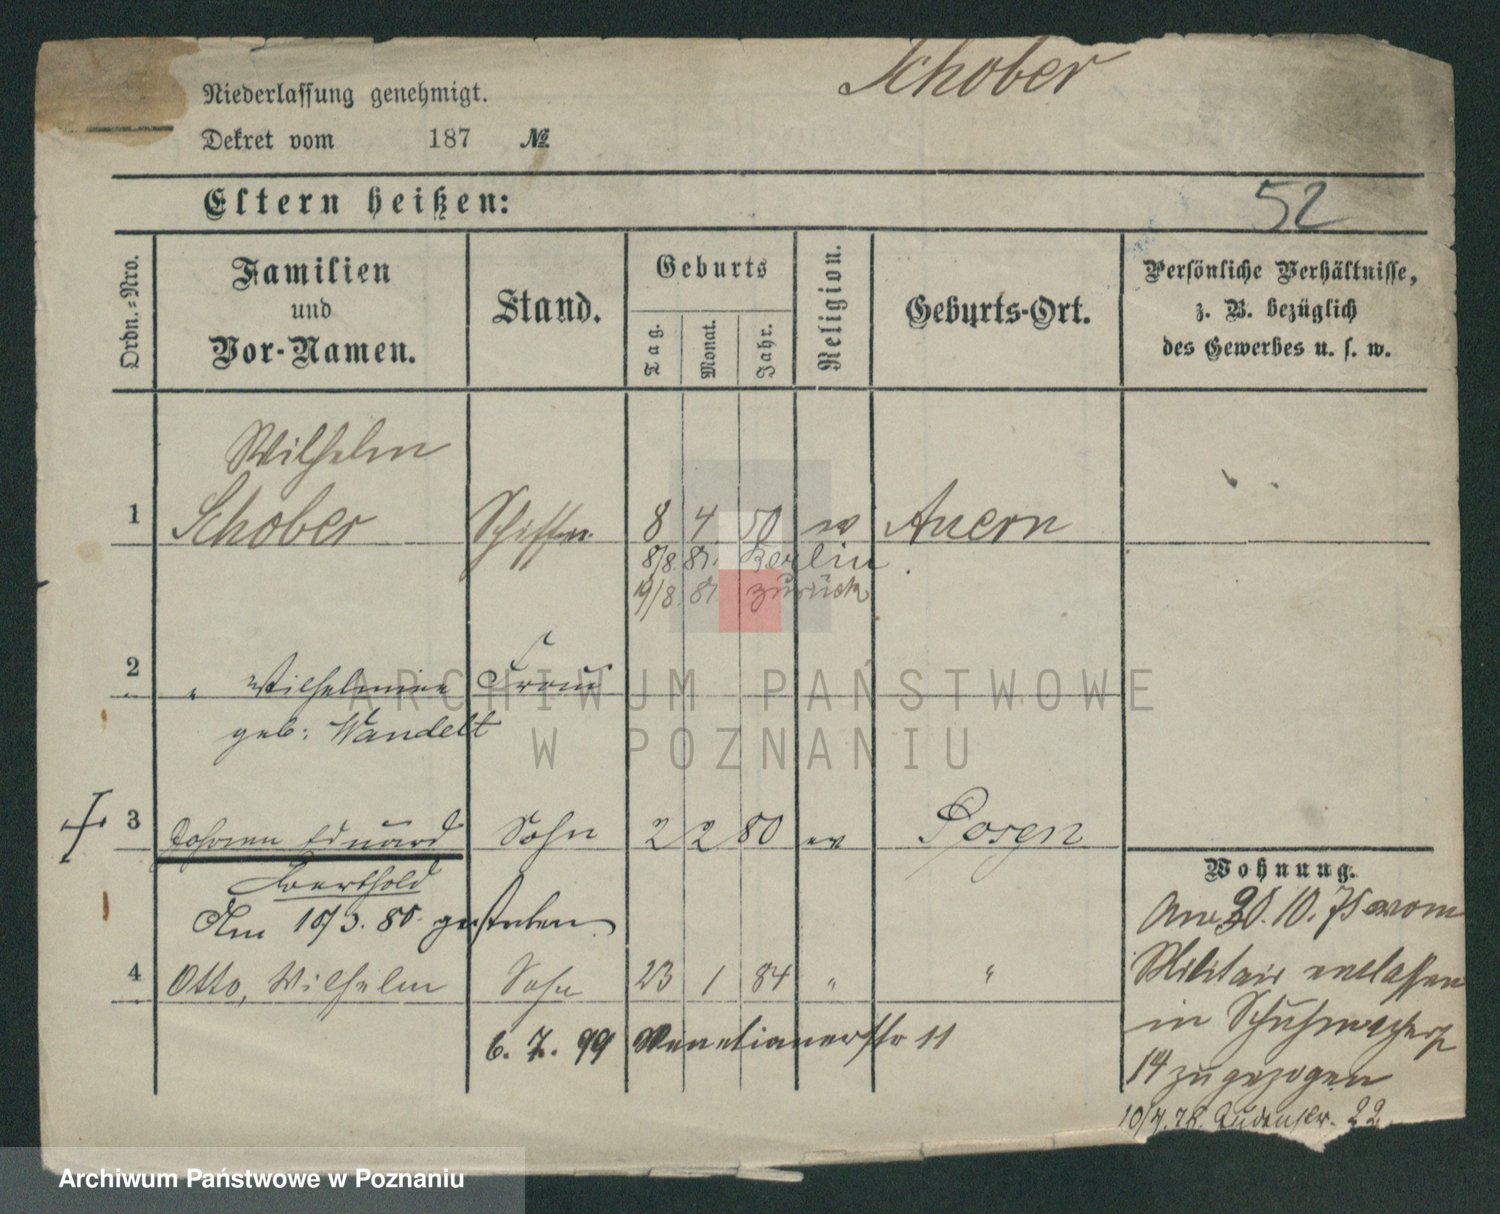 Schober
Niederlassung genehmigt.
Dekret vom 187 №
Eltern heißen:
52
Ordn.-Nro.
Familien
und
Vor-Namen.
Stand.
Geburts
Tag.
Monat.
Jahr.
Religion.
Geburts-Ort.
Persönliche Verhältnisse,
z. B. bezüglich
des Gewerbes u. s. w.
Wilhelm
1 Schober Schiffer 8 4 50 ev
8/8. 81. Berlin
19/8. 81 zurück
2 " Wilhelmine Frau
geb: Wandelt
3 Johann Eduard Sohn 2 2 80 ev Posen
Berthold
Am 10/3. 80. gestorben.
4 Otto, Wilhelm Sohn 23 1 84 " "
6. 7. 99 Venetianerstr 11
Wohnung.
10. 75 vom
Militair entlassen
in
14 zugezogen
22
ARCHIWUM PAŃSTWOWE
W POZNANIU
Archiwum Państwowe w Poznaniu